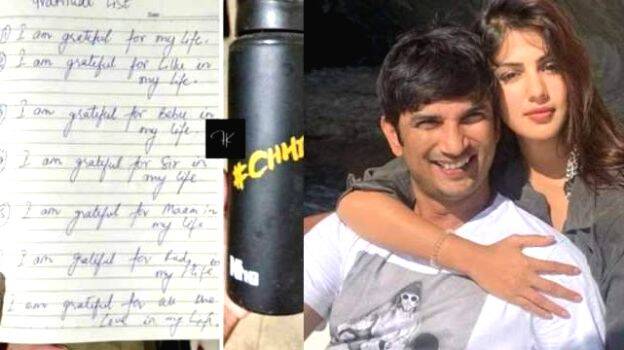 Gratitude List
Date
1) I am grateful for my life.
2) I am grateful for Lillu in
my life.
3) I am grateful for Bebu in
my life
4) I am grateful for Sir in
my life
5) I am grateful for Maam in
my life
I am grateful for Fudg in
my life.
I am grateful for all the
love in my life.
#CHHI